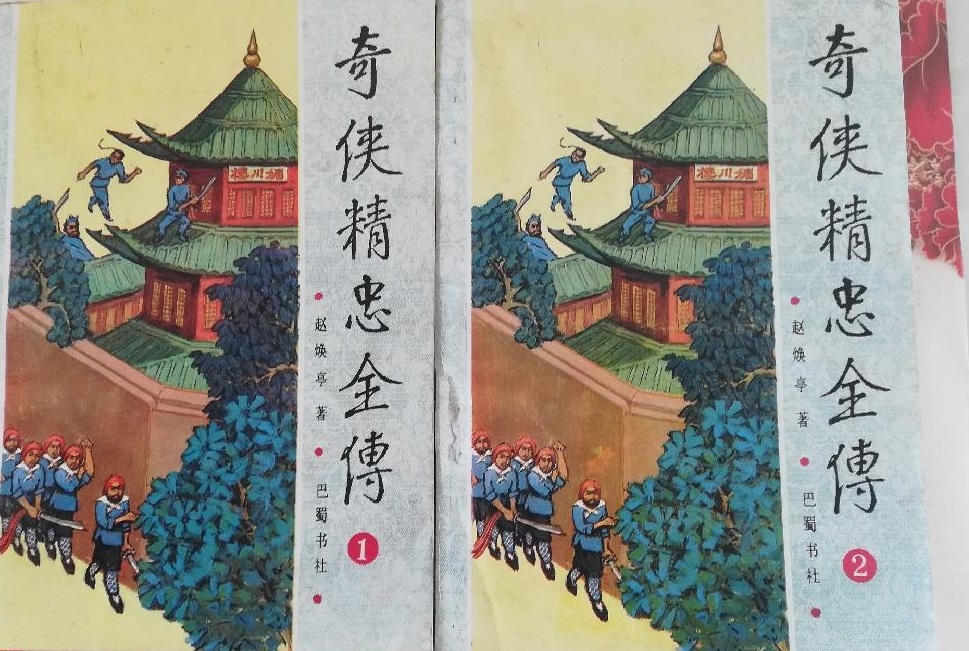 奇侠精忠全傳
赵焕亭著
巴蜀书社
1
奇侠精忠全傳
赵焕亭著
巴蜀书社
2